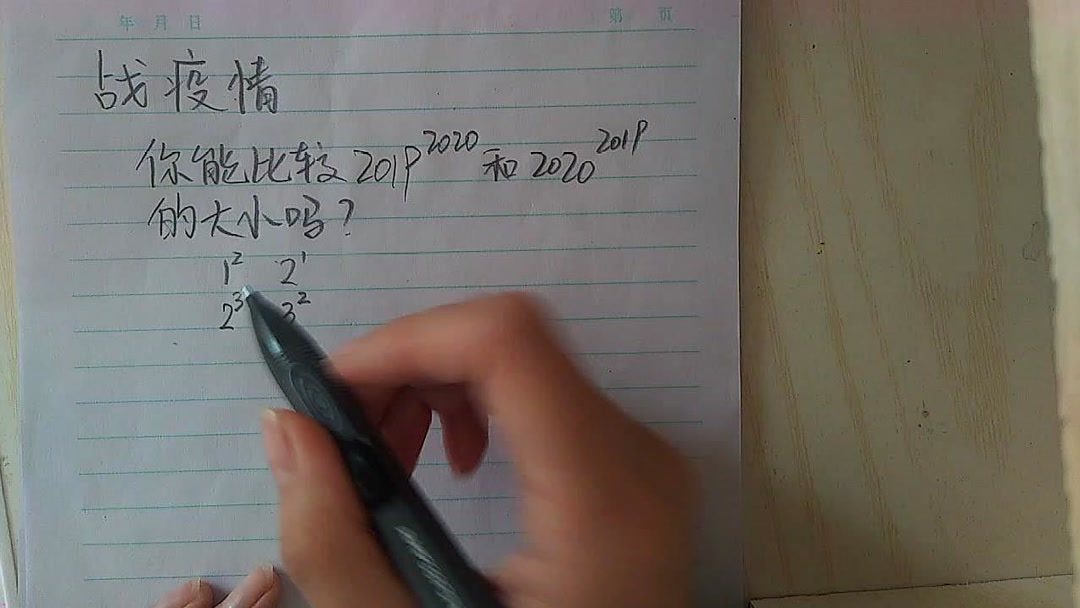 年 月 日
第 页
战疫情
你能比较2019^2020和2020^2019
的大小吗?
1^2 2^1
2^3 3^2